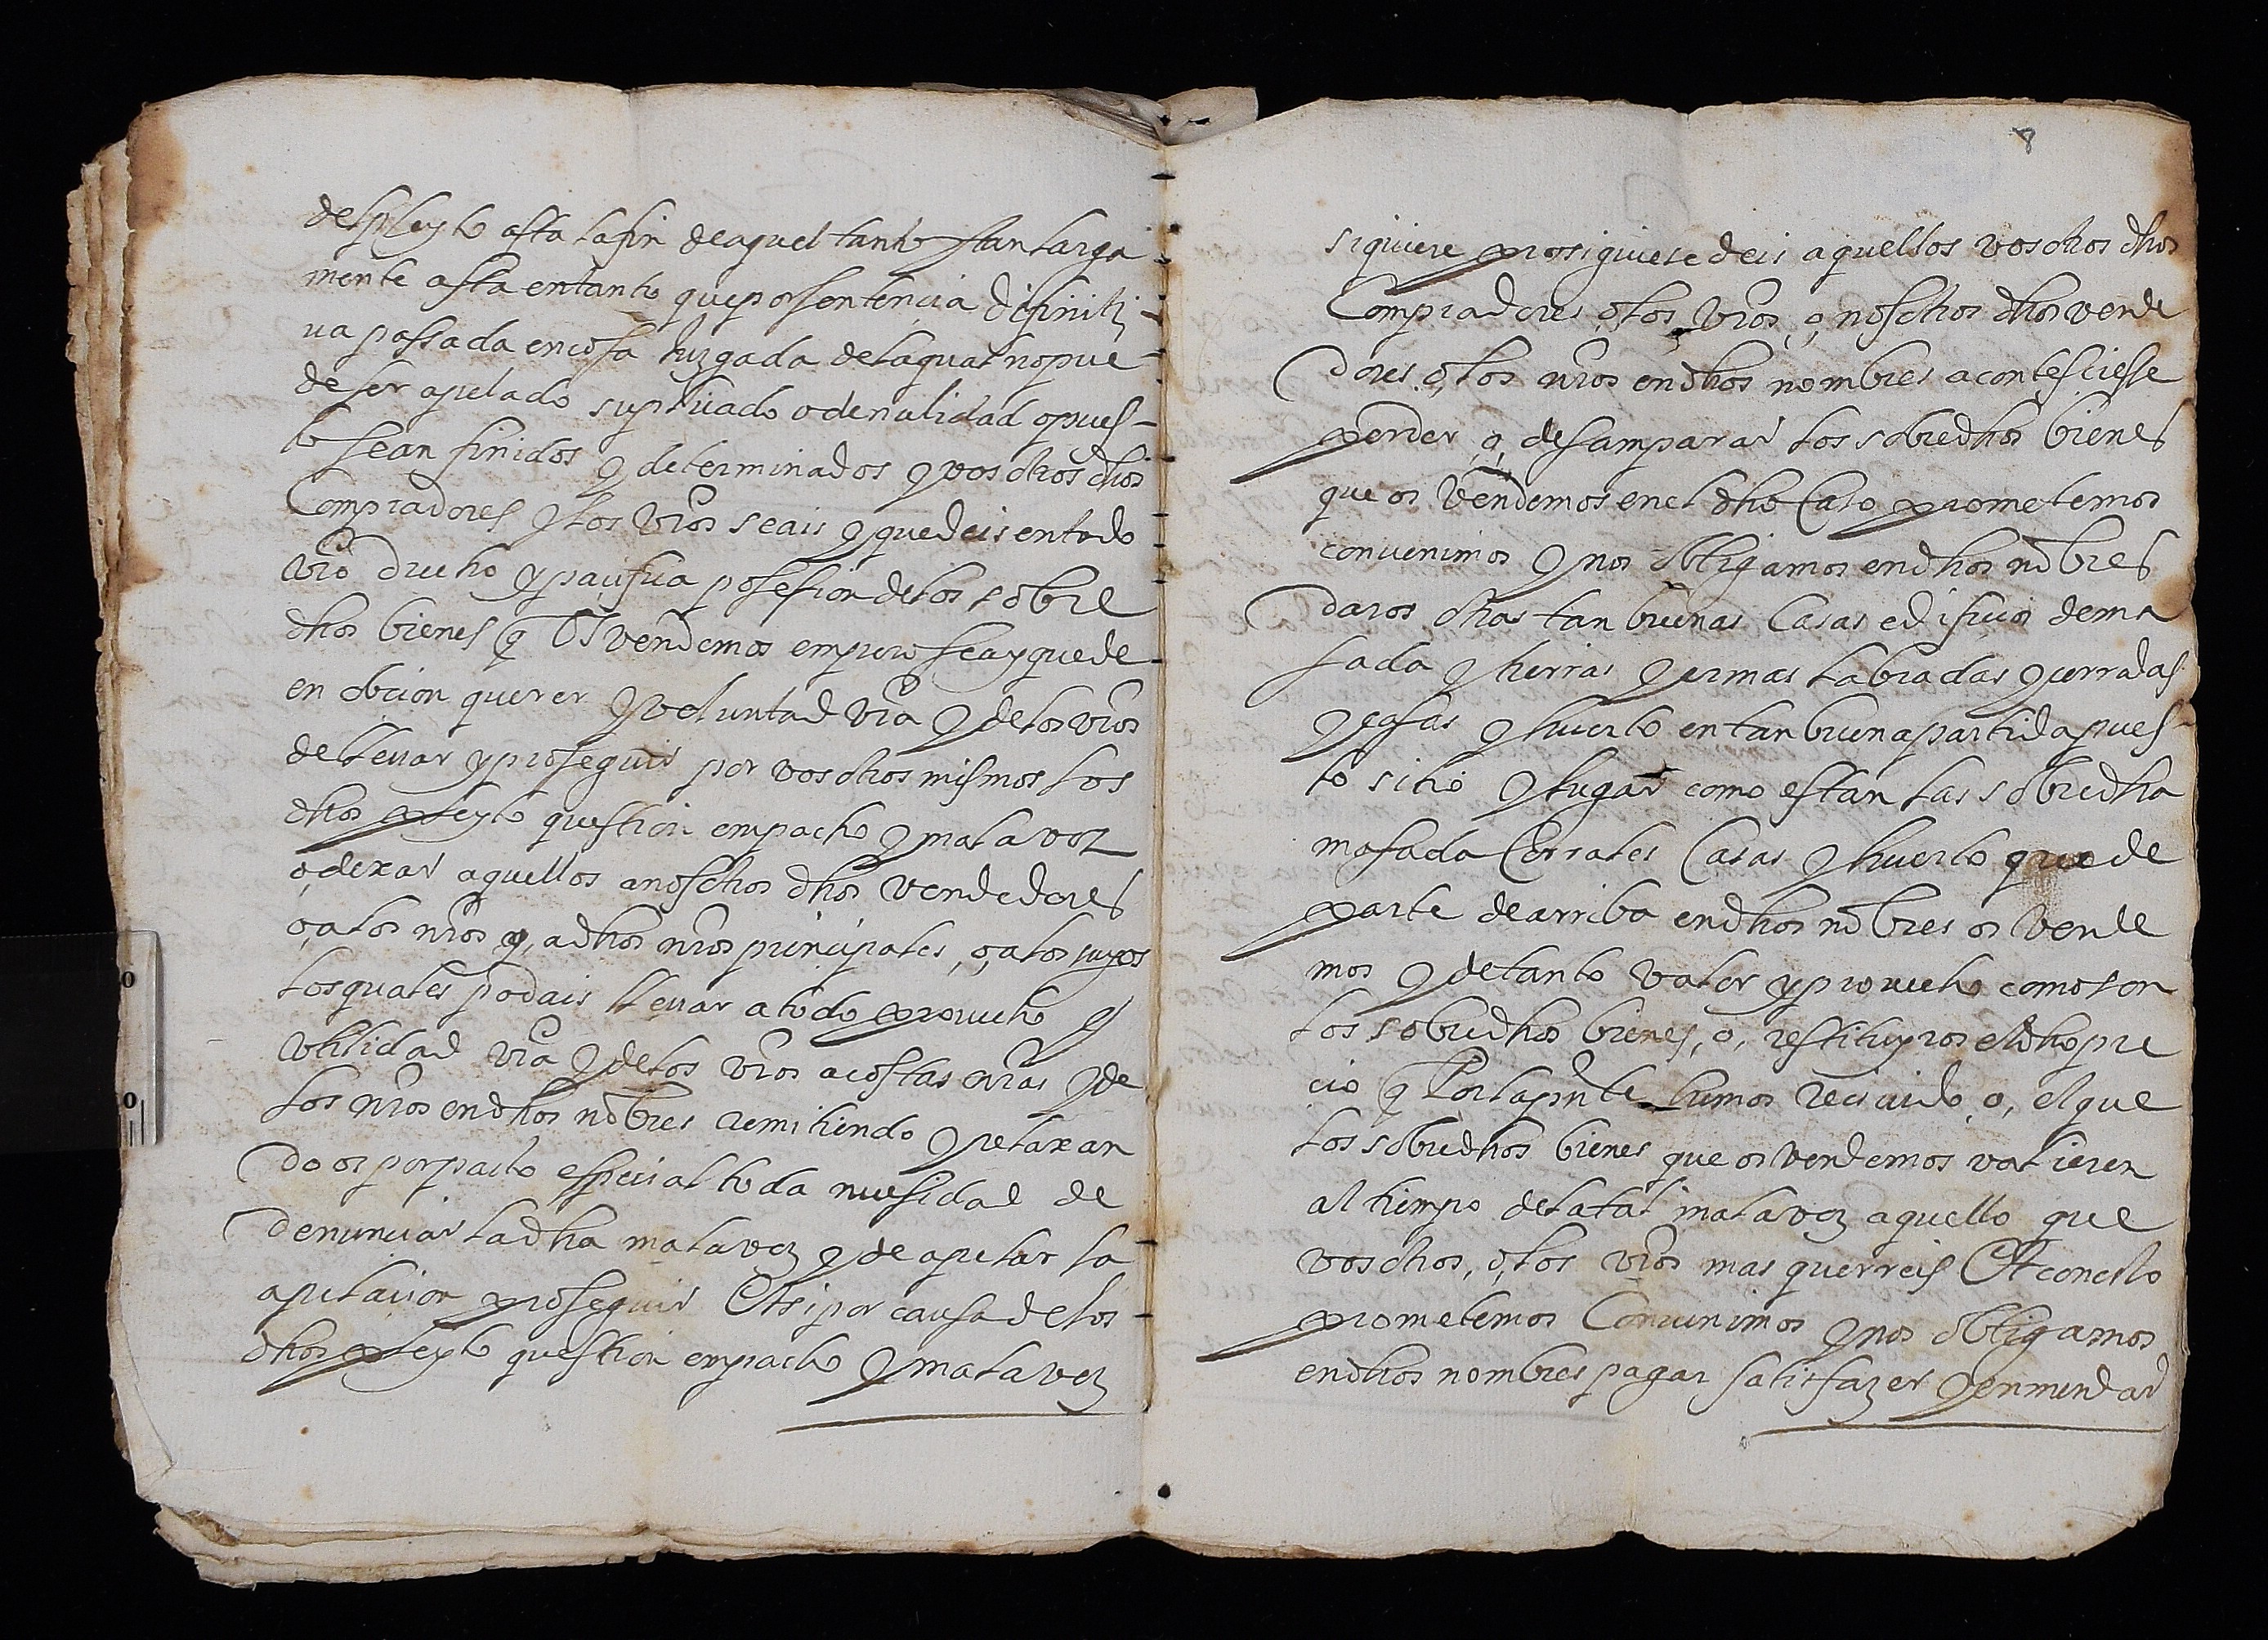 del pleyto asta la fin de aquel tanto y tan larga
mente asta en tanto que por sentencia difiniti-
ua passada en cosa Juzgada de la qual no pue-
de ser apelado suplicado o de nulidad opues-
to sean finidos y determinados y vosotros dhos
Compradores y los vros seais y quedeis en todo
vro drecho y pacifica posesion de los sobre
dhos bienes q Os vendemos empero sea y quede
en obcion querer y voluntad vra y de los vros
de lleuar y proseguir por vosotros mismos los
dhos pleyto question empacho y mala voz
o, dexar aquellos a nosotros dhos vendedores
o, a los nros o, a dhos nros principales, o, a los suyos
los quales podais lleuar a todo prouecho y
vtilidad vra y de los vros a costas nras y de
los nros en dhos nõbres remitiendo y relaxan
do os por pacto especial toda necesidad de
denunciar la dha mala voz y de apelar la
apelacion proseguir Et si por causa de los
dhos pleyto question empacho y mala voz
8
siquiere prosiguiesedeis aquellos vosotros dhos
Compradores, o, los vros, o, nosotros dhos vende
dores, o, los nros en dhos nombres acontesciesse
perder, o, desamparar los sobredhos bienes
que os vendemos en el dho Caso prometemos
conuenimos y nos obligamos en dhos nõbres
daros otras tan buenas Casas edificios dema
sada y tierras yermas labradas y cerradas
y casas y huerto en tan buena partida pues-
to sitio y lugar como estan las sobredha
masada Cerrates Casas y huerto que de
parte de arriba en dhos nõbres os vende
mos y de tanto valor y prouecho como son
los sobredhos bienes, o, restituyros el dho pre
cio q Por la pnte hemos reciuido, o, el que
los sobredhos bienes que os vendemos valieren
al tiempo de la tal mala voz aquello que
vosotros, o, los vros mas querreis Et con esto
prometemos Conuenimos y nos obligamos
en dhos nombres pagar satisfazer y enmendar